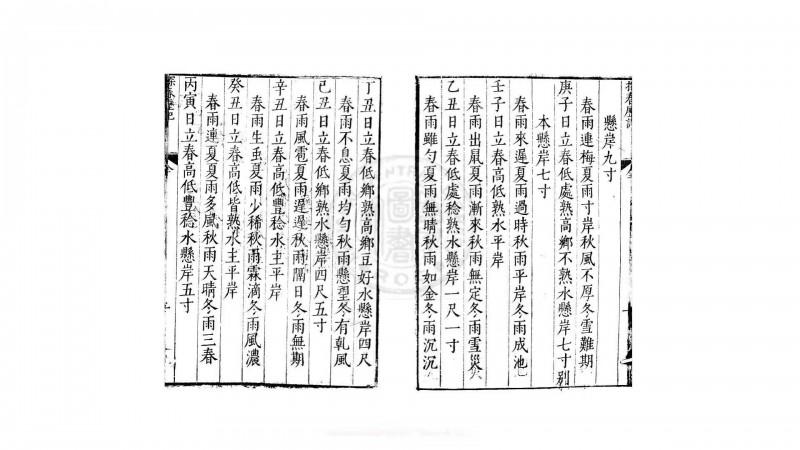 懸岸九寸
春雨連梅夏雨寸岸秋風不厚冬雪難期
庚子日立春低處熟高鄉不熟水懸岸七寸别
本懸岸七寸
春雨來遲夏雨過時秋雨平岸冬雨成池
壬子日立春高低熟水平岸
春雨出鼠夏雨漸來秋雨無定冬雨雪災
乙丑日立春低處稔熟水懸岸一尺一寸
春雨雖勻夏雨無晴秋雨如金冬雨沉沉
丁丑日立春低鄉熟高鄉豆好水懸岸四尺
春雨不息夏雨均勻秋雨懸望冬有乾風
己丑日立春低鄉熟水懸岸四尺五寸
春雨風雹夏雨遲遲秋雨隔日冬雨無期
辛丑日立春高低豐稔水主平岸
春雨生虽夏雨少稀秋雨霖滴冬雨風濃
癸丑日立春高低皆熟水主平岸
春雨連夏夏雨多風秋雨天晴冬雨三春
丙寅日立春高低豐稔水懸岸五寸
探春歷記